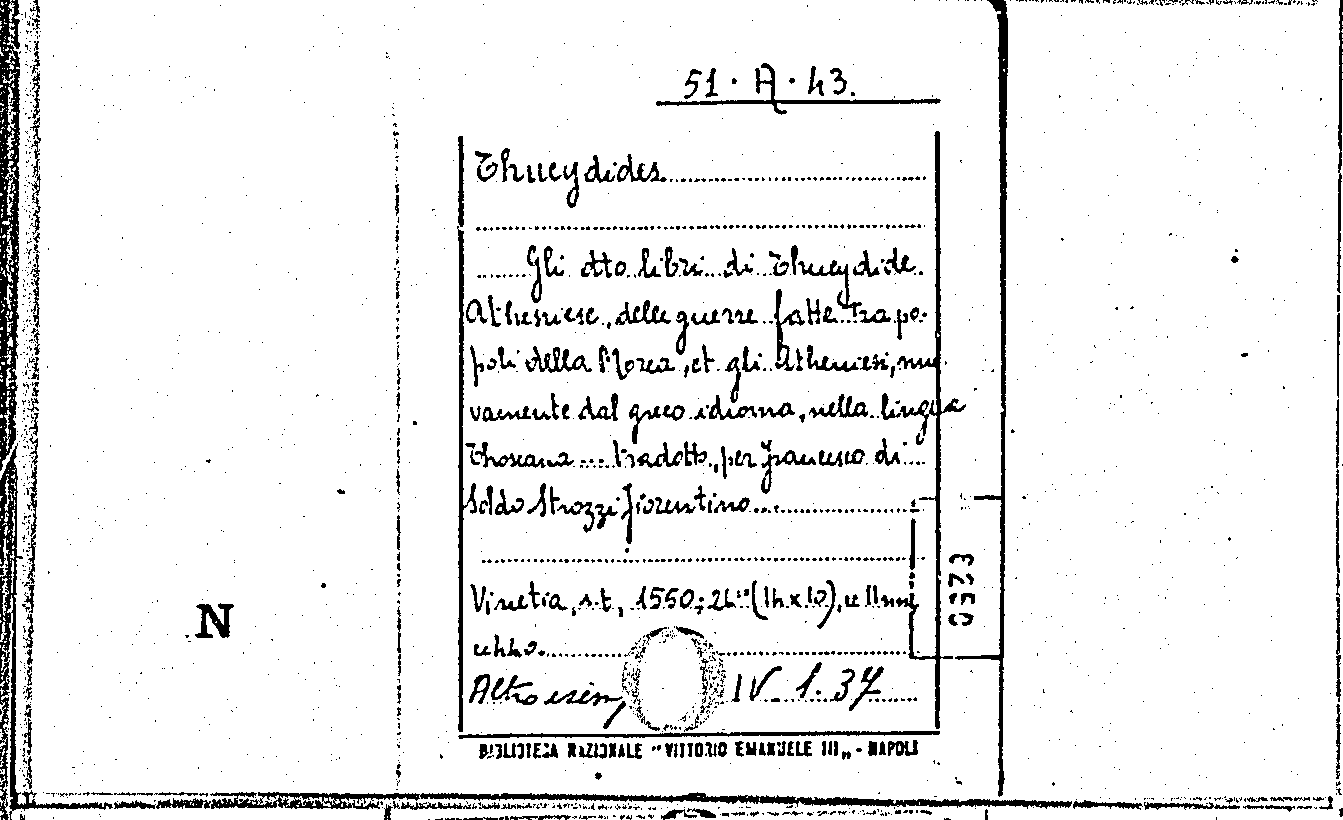 51 · A · 43.
Thucydides
Gli otto libri di Thucydide
Atheniese, delle guerre fatte tra po-
poli della Morea, et gli Atheniesi, nuo
vamente dal greco idioma, nella lingua
Thoscana ... tradotto, per Francesco di
Soldo Strozzi fiorentino
N
Vinetia, s.t., 1550; (14x10),
0523
Altro esem,
IV 1. 37
BIBLIOTECA NAZIONALE "VITTORIO EMANUELE III„ - NAPOLI